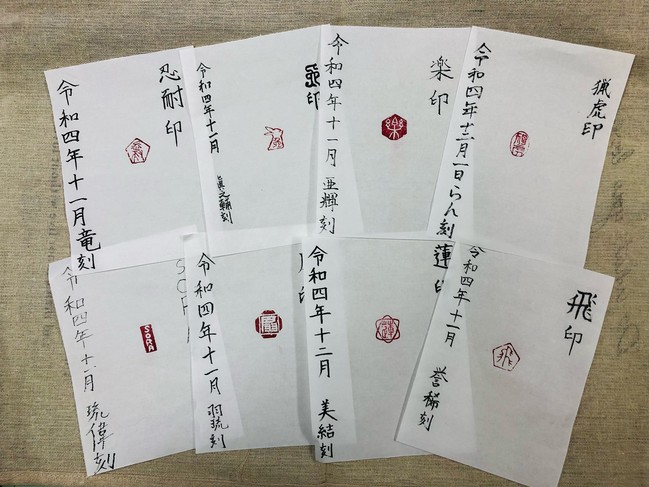 忍耐印
令和四年十一月竜刻
印
令和四年十一月
眞之輔刻
楽印
令和四年十一月 亜輝刻
楽
猟虎印
令和四年十二月一日らん刻
SORA
令和四年十一月 琉偉刻
SORA
印
令和四年十一月 羽琉刻
蓮印
令和四年十二月 美結刻
飛印
令和四年十一月 誉稀刻
飛